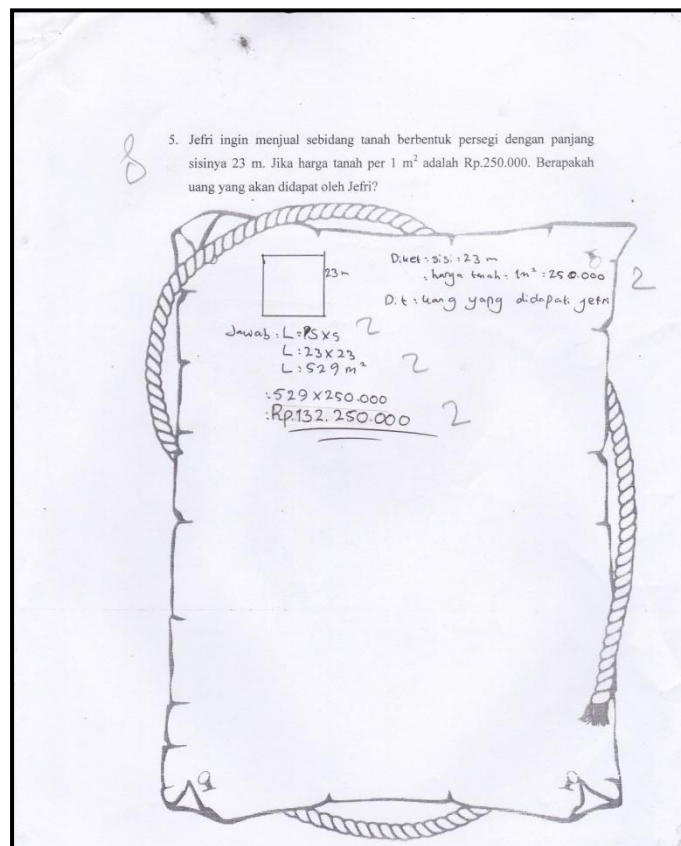 8
5. Jefri ingin menjual sebidang tanah berbentuk persegi dengan panjang
sisinya 23 m. Jika harga tanah per 1 m² adalah Rp.250.000. Berapakah
uang yang akan didapat oleh Jefri?
23 m
Diket : sisi : 23 m
: harga tanah : 1m² : 250.000
2
Dit : uang yang didapati jefri
Jawab : L = S x s
2
L : 23 x 23
L : 529 m²
2
: 529 x 250.000
: Rp.132.250.000
2